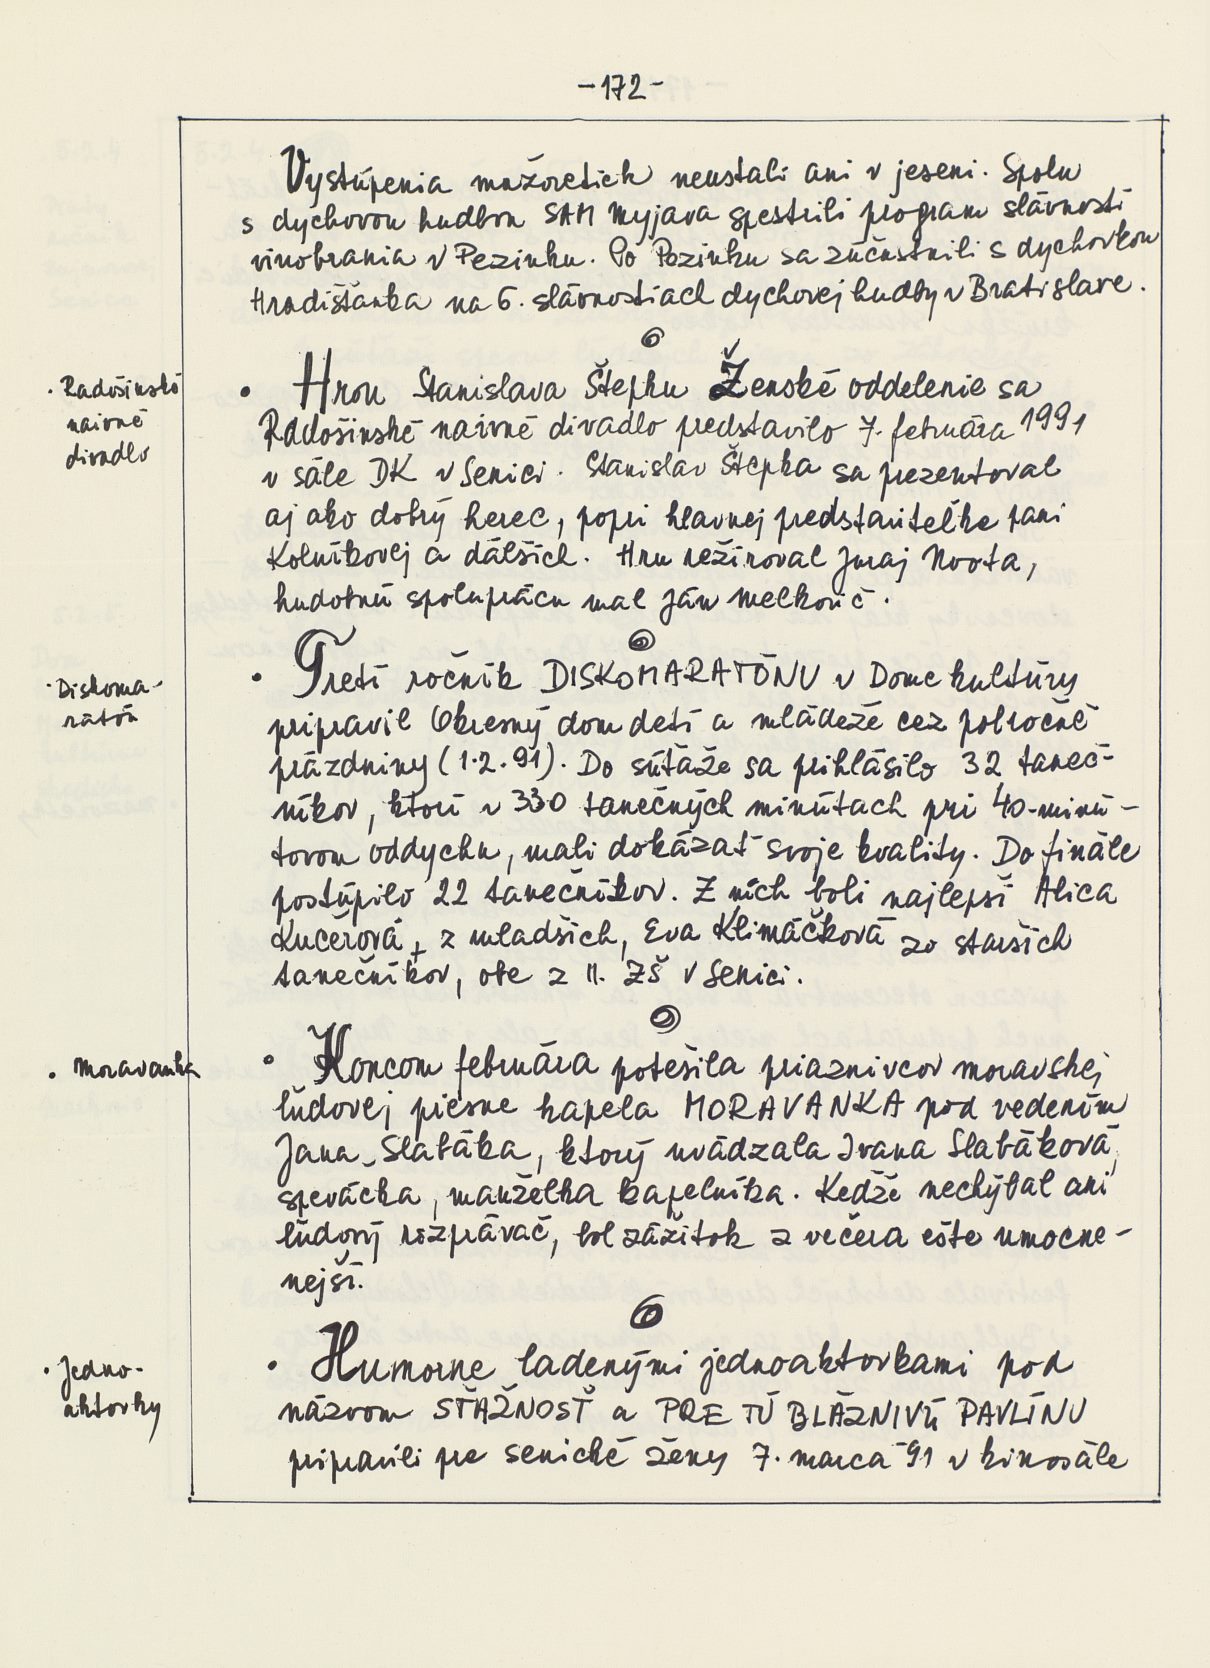 -172-
Vystúpenia mažoretiek neustali ani v jeseni. Spolu
s dychovou hudbou SAM Myjava spestrili program slávností
vinobrania v Pezinku. Po Pezinku sa zúčastnili s dychovkou
Hradišťanka na 6. slávnostiach dychovej hudby v Bratislave.
· Radošinské
naivné
divadlo
• Hrou Stanislava Štepku Ženské oddelenie sa
Radošinské naivné divadlo predstavilo 7. februára 1991
v sále DK v Senici. Stanislav Štepka sa prezentoval
aj ako dobrý herec, popri hlavnej predstaviteľke pani
Kolníkovej a ďalších. Hru režíroval Juraj Nvota,
hudobnú spoluprácu mal Ján Melkovič.
· Diskoma-
ratón
• Tretí ročník DISKOMARATÓNU v Dome kultúry
pripravil Okresný dom detí a mládeže cez polročné
prázdniny (1.2.91). Do súťaže sa prihlásilo 32 taneč-
níkov, ktorí v 330 tanečných minútach pri 40-minú-
tovom oddychu, mali dokázať svoje kvality. Do finále
postúpilo 22 tanečníkov. Z nich boli najlepší Alica
Kucerová, z mladších, Eva Klimáčková zo starších
tanečníkov, obe z II. ZŠ v Senici.
· Moravanka
• Koncom februára potešila priaznivcov moravskej
ľudovej piesne kapela MORAVANKA pod vedením
Jana Slabáka, ktorý uvádzala Ivana Slabáková,
speváčka, manželka kapelníka. Keďže nechýbal ani
ľudový rozprávač, bol zážitok z večera ešte umocne-
nejší.
· Jedno-
aktovky
• Humorne ladenými jednoaktovkami pod
názvom SŤAŽNOSŤ a PRE TÚ BLÁZNIVÚ PAVLÍNU
pripravili pre senické ženy 7. marca 91 v kinosále